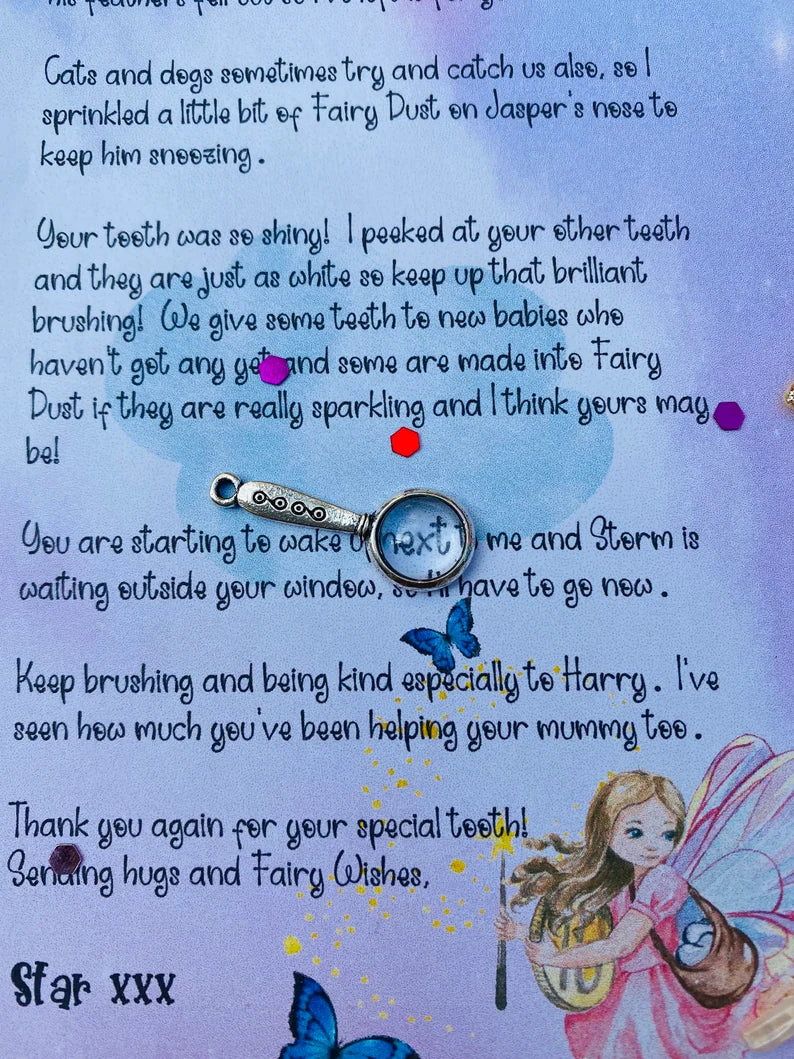 Cats and dogs sometimes try and catch us also, so I
sprinkled a little bit of Fairy Dust on Jasper's nose to
keep him snoozing.
Your tooth was so shiny! I peeked at your other teeth
and they are just as white so keep up that brilliant
brushing! We give some teeth to new babies who
haven't got any yet and some are made into Fairy
Dust if they are really sparkling and I think yours may
be!
You are starting to wake next to me and Storm is
waiting outside your window, so I'll have to go now.
Keep brushing and being kind especially to Harry. I've
seen how much you've been helping your mummy too.
Thank you again for your special tooth!
Sending hugs and Fairy Wishes,
Star xxx
10